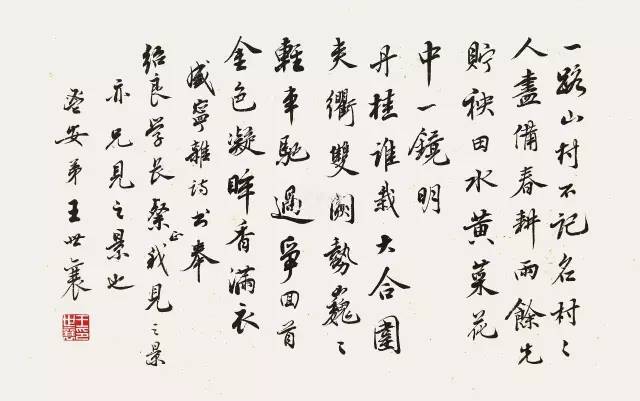 一路山村不記名村〻
人盡備春耕雨餘先
貯秧田水黄菜花
中一鏡明
丹桂誰栽大合圍
夾衢雙闕勢巍〻
輕車馳過爭回首
金色凝眸香滿衣
咸寧雜詩書奉
紹良学長粲正我見之景
亦兄見之景也
鬯安弟王世襄